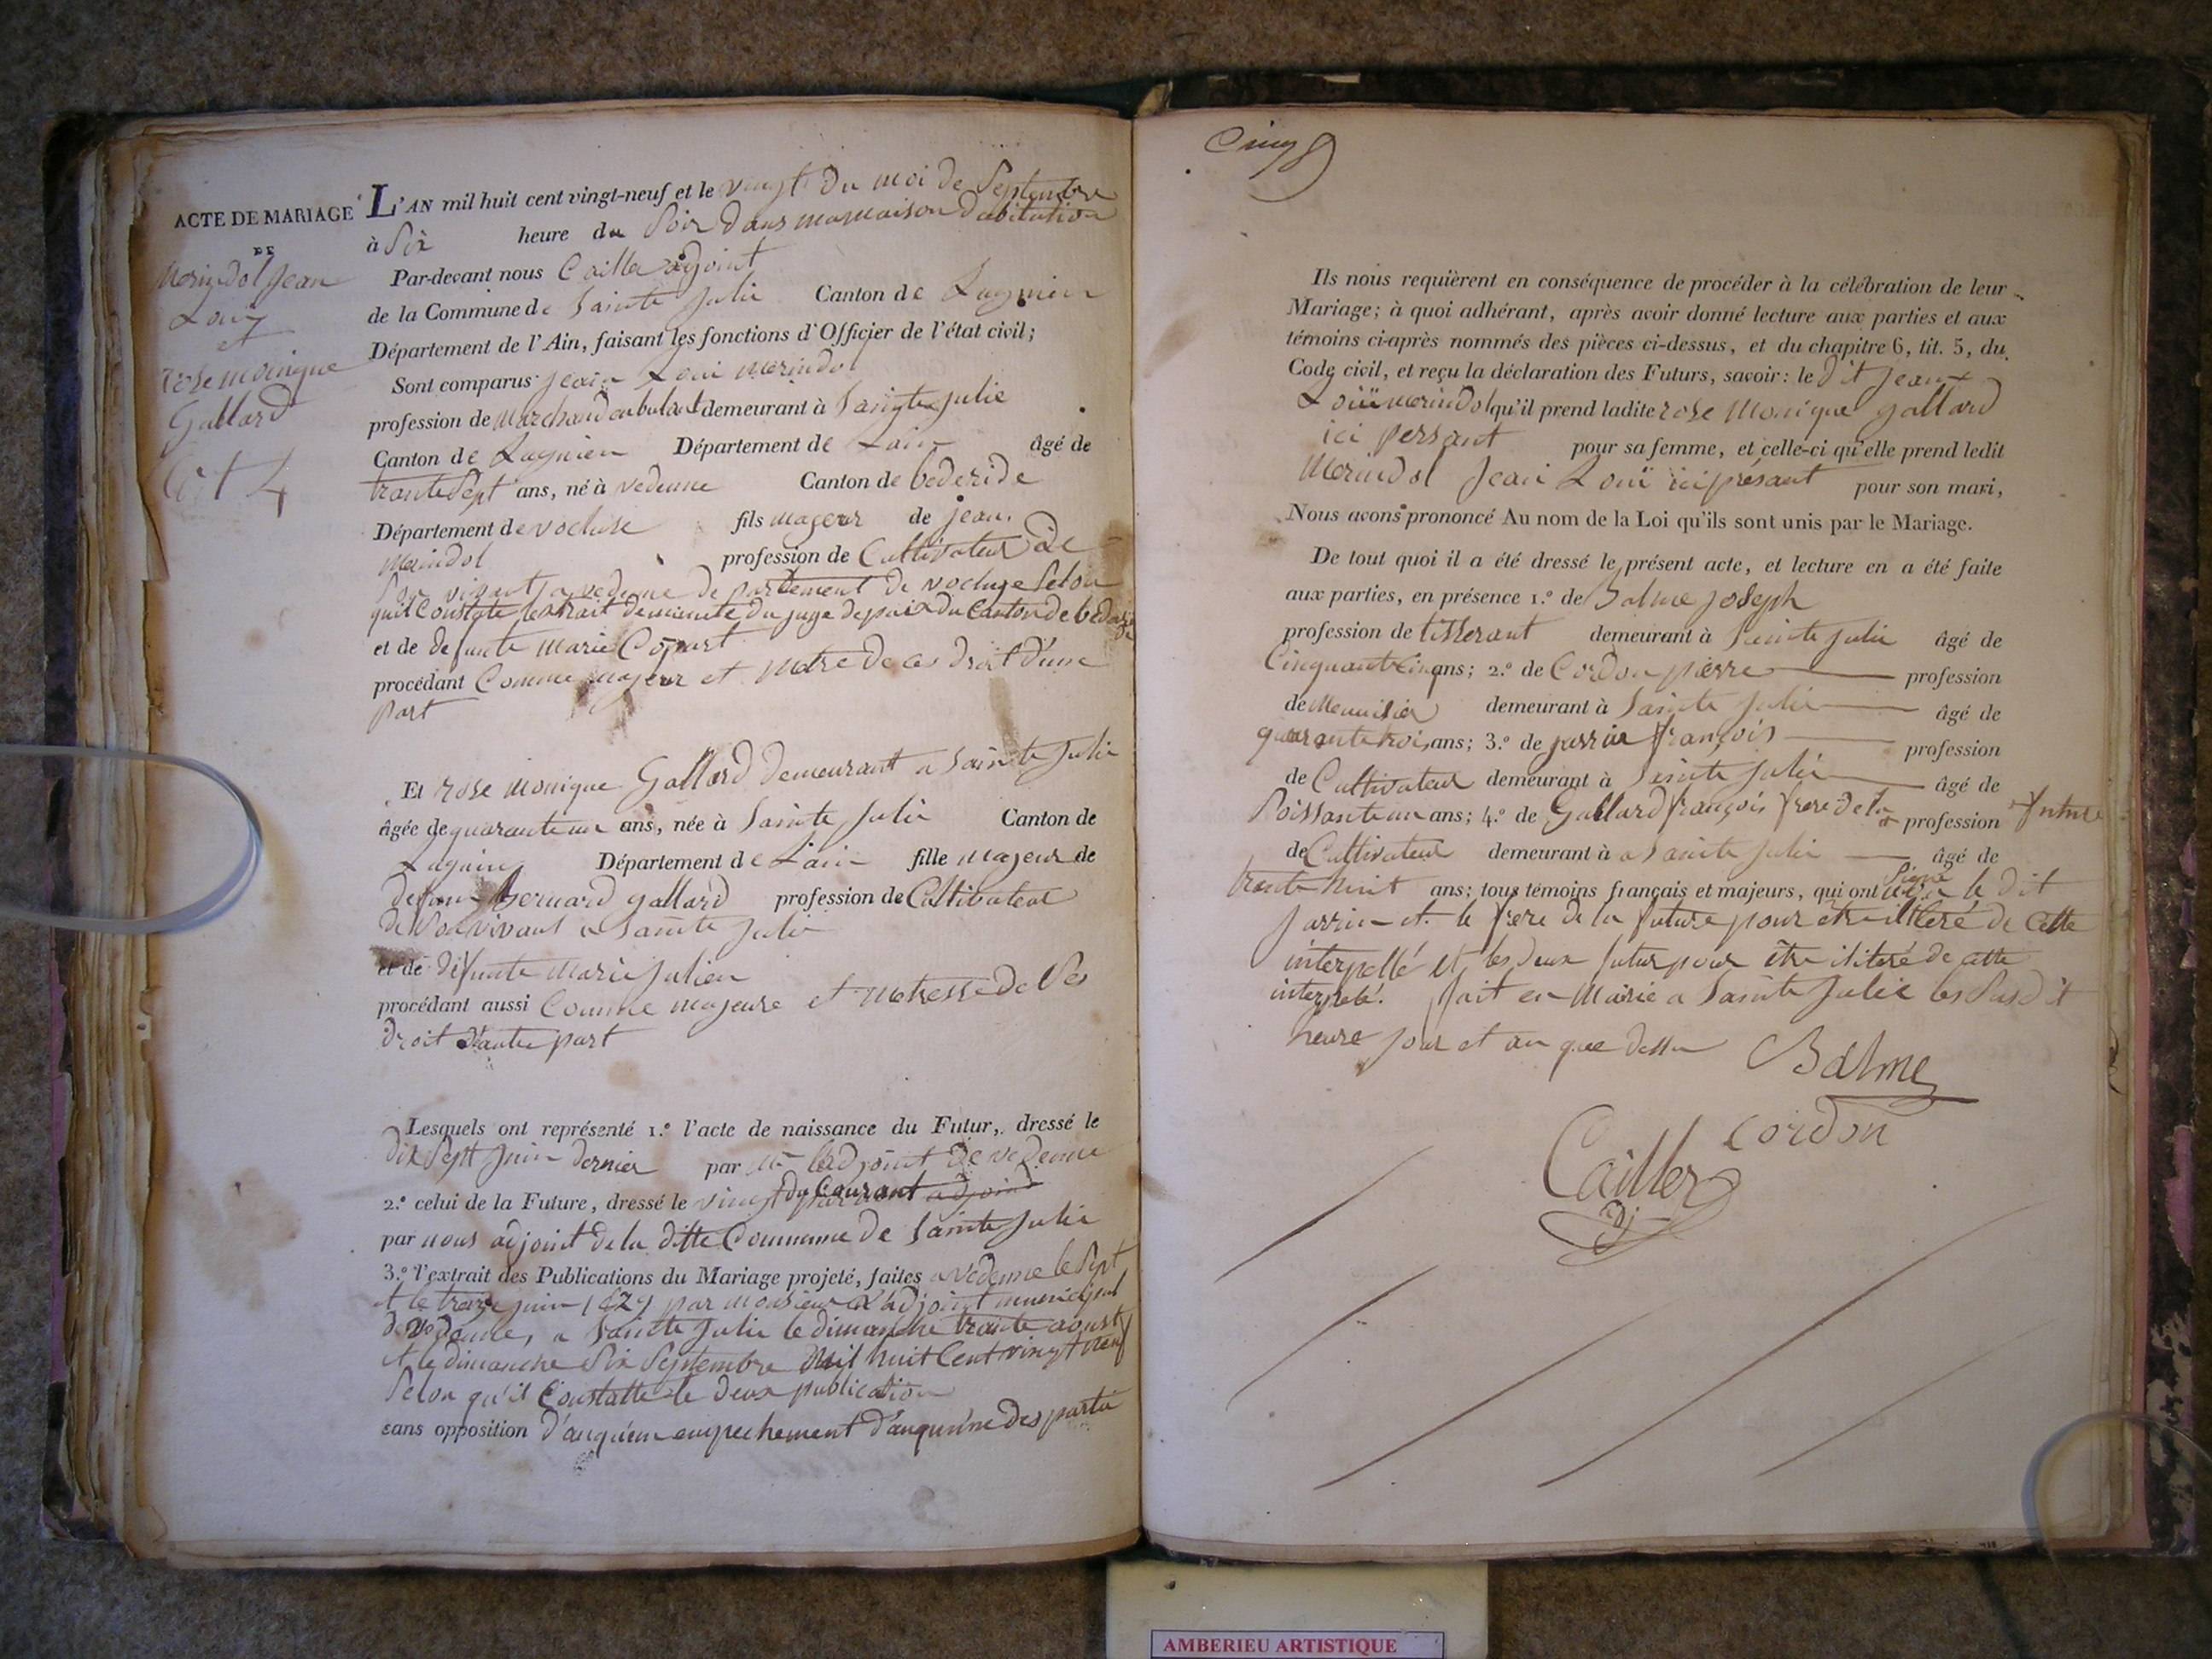 ACTE DE MARIAGE
DE
Merindol Jean
Loui
et
rose monique
Gallard
L'AN mil huit cent vingt-neuf et le vingt du moi de Septembre
à Six heure du Soir dans ma maison dabitation
Par-devant nous Cailler adjoint
de la Commune de Sainte Julie Canton de Lagnieu
Département de l'Ain, faisant les fonctions d'Officier de l'état civil;
Sont comparus Jean Loui merindol
profession de Marchand anbulant demeurant à Sainte Julie
Canton de Lagnieu Département de Lain âgé de
trante Sept ans, né à vedenne Canton de bederide
Département de vocluse fils mageur de jean
Merindol profession de Cultivateur de
Son vivant a vedenne departement de vocluse Selon
quil Constate lextrait deminute du juge de paix du Canton de
et de defunte Marie
procédant Comme majeur et metre de ces droit d'une
part
Et rose monique Gallard demeurant a Sainte Julie
âgée de quarante un ans, née à Sainte Julie Canton de
Lagnieu Département de Lain fille majeur de
defunt bernard gallard profession de Cultivateur
de Son vivant a Sainte Julie
et de defunte Marie Julien
procédant aussi Comme majeure et metresse de Ses
droit d'autre part
Lesquels ont représenté 1.º l'acte de naissance du Futur, dressé le
dix Sept Juin dernier par Mr ladjoint de vedenne
2.º celui de la Future, dressé le vingt du Courant adjoint
par nous adjoint de la ditte Commune de Sainte Julie
3.º l'extrait des Publications du Mariage projeté, faites a vedenne le Sept
et le juin 1829 par monsieur L'adjoint municipal
de vedenne, a Sainte Julie le dimanche trante aoust
et le dimanche Six Septembre mil huit Cent vingt neuf
Selon qu'il Constatte le deux publication
sans opposition d'auquun empechement d'auquune des partie
Cinq
Ils nous requièrent en conséquence de procéder à la célébration de leur
Mariage; à quoi adhérant, après avoir donné lecture aux parties et aux
témoins ci-après nommés des pièces ci-dessus, et du chapitre 6, tit. 5, du
Code civil, et reçu la déclaration des Futurs, savoir: le dit Jean
Louï merindol qu'il prend ladite rose Monique gallard
ici persant pour sa femme, et celle-ci qu'elle prend ledit
Merindol Jean Louï ici présant pour son mari,
Nous avons prononcé Au nom de la Loi qu'ils sont unis par le Mariage.
De tout quoi il a été dressé le présent acte, et lecture en a été faite
aux parties, en présence 1.º de Balme joseph
profession de tisserant demeurant à Sainte Julie âgé de
Cinquante Cinq ans; 2.º de Cordon pierre profession
de Menuisier demeurant à Sainte Julie âgé de
quarante troi ans; 3.º de jarrin françois profession
de Cultivateur demeurant à Sainte Julie âgé de
Soissante un ans; 4.º de Gallard françois frere de la future profession
de Cultivateur demeurant à a Sainte Julie âgé de
trante huit ans; tous témoins français et majeurs, qui ont Signé le dit
jarrin et le frere de la future pour être illeré de Cette
interpellé et les deux futur pour être iliteré de cette
interpelé. fait en Mairie a Sainte Julie les Susdit
heure jour et an que dessu
Balme
Cordon
Cailler
adj
AMBERIEU ARTISTIQUE